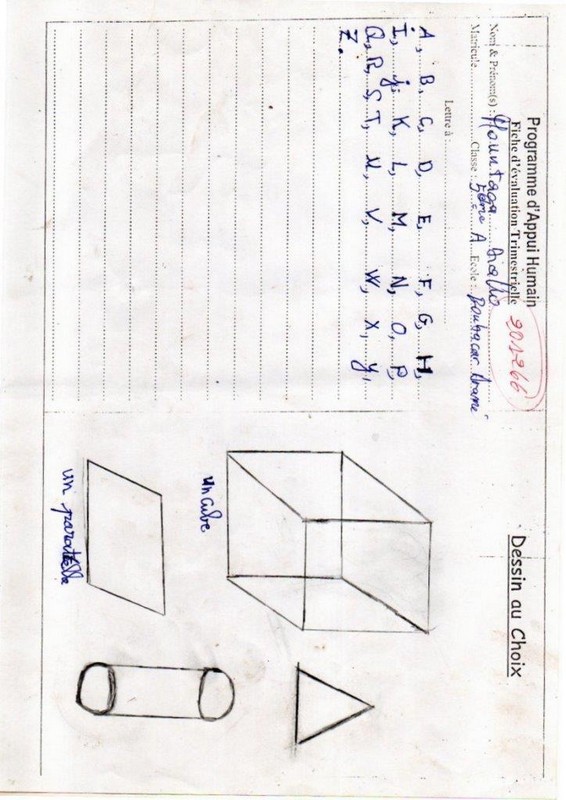 Programme d'Appui Humain
Fiche d'évaluation Trimestrielle
201266
Nom & Prénom(s) : Mountaga Diallo
Matricule Classe : 5ème A Ecole : Boubacar
Lettre à :
A, B, C, D, E, F, G, H,
I, j, K, L, M, N, O, P,
Q, R, S, T, U, V, W, X, Y,
Z.
Dessin au Choix
un cube
un